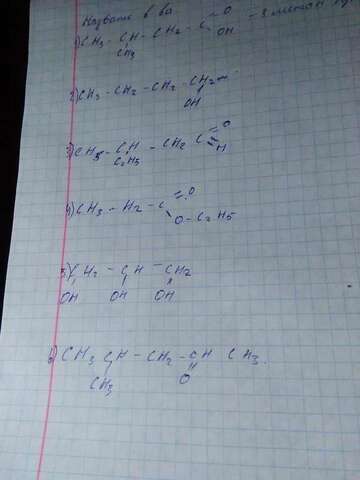 Назвать в ва
1) CH3 - CH - CH2 - C = O
OH
CH3
2) CH3 - CH2 - CH2 - CH2
OH
3) CH3 - CH - CH2 - C = O
H
C2H5
4) CH3 - H2 - C = O
O - C2H5
5) CH2 - CH - CH2
OH OH OH
6) CH3 CH - CH2 - CH CH3.
CH3 O